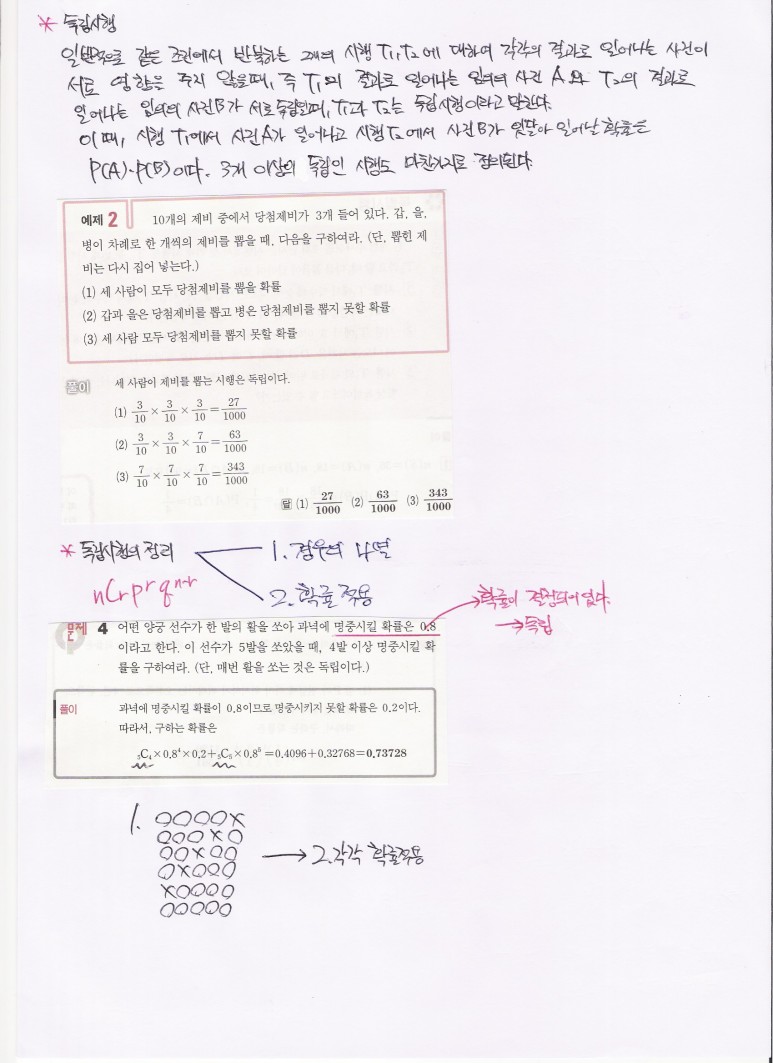 * 독립시행
일반적으로 같은 조건에서 반복하는 2개의 시행 T₁, T₂에 대하여 각각의 결과로 일어나는 사건이
서로 영향을 주지 않을때, 즉 T₁의 결과로 일어나는 임의의 사건 A와 T₂의 결과로
일어나는 임의의 사건 B가 서로 독립일때, T₁과 T₂는 독립시행이라고 말한다.
이 때, 시행 T₁에서 사건A가 일어나고 시행T₂에서 사건B가 잇달아 일어날 확률은
P(A)·P(B)이다. 3개 이상의 독립인 시행도 마찬가지로 정의된다.
예제 2 10개의 제비 중에서 당첨제비가 3개 들어 있다. 갑, 을,
병이 차례로 한 개씩의 제비를 뽑을 때, 다음을 구하여라. (단, 뽑힌 제
비는 다시 집어 넣는다.)
(1) 세 사람이 모두 당첨제비를 뽑을 확률
(2) 갑과 을은 당첨제비를 뽑고 병은 당첨제비를 뽑지 못할 확률
(3) 세 사람 모두 당첨제비를 뽑지 못할 확률
풀이 세 사람이 제비를 뽑는 시행은 독립이다.
(1) 3/10 × 3/10 × 3/10 = 27/1000
(2) 3/10 × 3/10 × 7/10 = 63/1000
(3) 7/10 × 7/10 × 7/10 = 343/1000
답 (1) 27/1000 (2) 63/1000 (3) 343/1000
* 독립시행의 정리
1. 경우의 나열
2. 확률 적용
nCr pʳ qⁿ⁻ʳ
→확률이 결정되어 있다.
→독립
문제 4 어떤 양궁 선수가 한 발의 활을 쏘아 과녁에 명중시킬 확률은 0.8
이라고 한다. 이 선수가 5발을 쏘았을 때, 4발 이상 명중시킬 확
률을 구하여라. (단, 매번 활을 쏘는 것은 독립이다.)
풀이 과녁에 명중시킬 확률이 0.8이므로 명중시키지 못할 확률은 0.2이다.
따라서, 구하는 확률은
₅C₄×0.8⁴×0.2+₅C₅×0.8⁵=0.4096+0.32768=0.73728
1. OOOOX
OOOXO
OOXOO
OXOOO
XOOOO
OOOOO
→ 2. 각각 확률적용